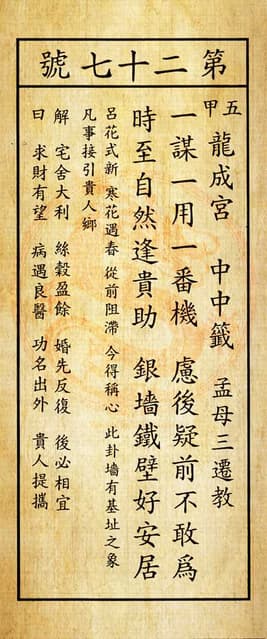 第二十七號
五甲 龍成宮 中中籤 孟母三遷教
一謀一用一番機 慮後疑前不敢為
時至自然逢貴助 銀墻鐵壁好安居
呂花式新 寒花遇春 從前阻滯 今得稱心 此卦墻有基址之象
凡事接引貴人鄉
解 宅舍大利 絲穀盈餘 婚先反復 後必相宜
曰 求財有望 病遇良醫 功名出外 貴人提攜